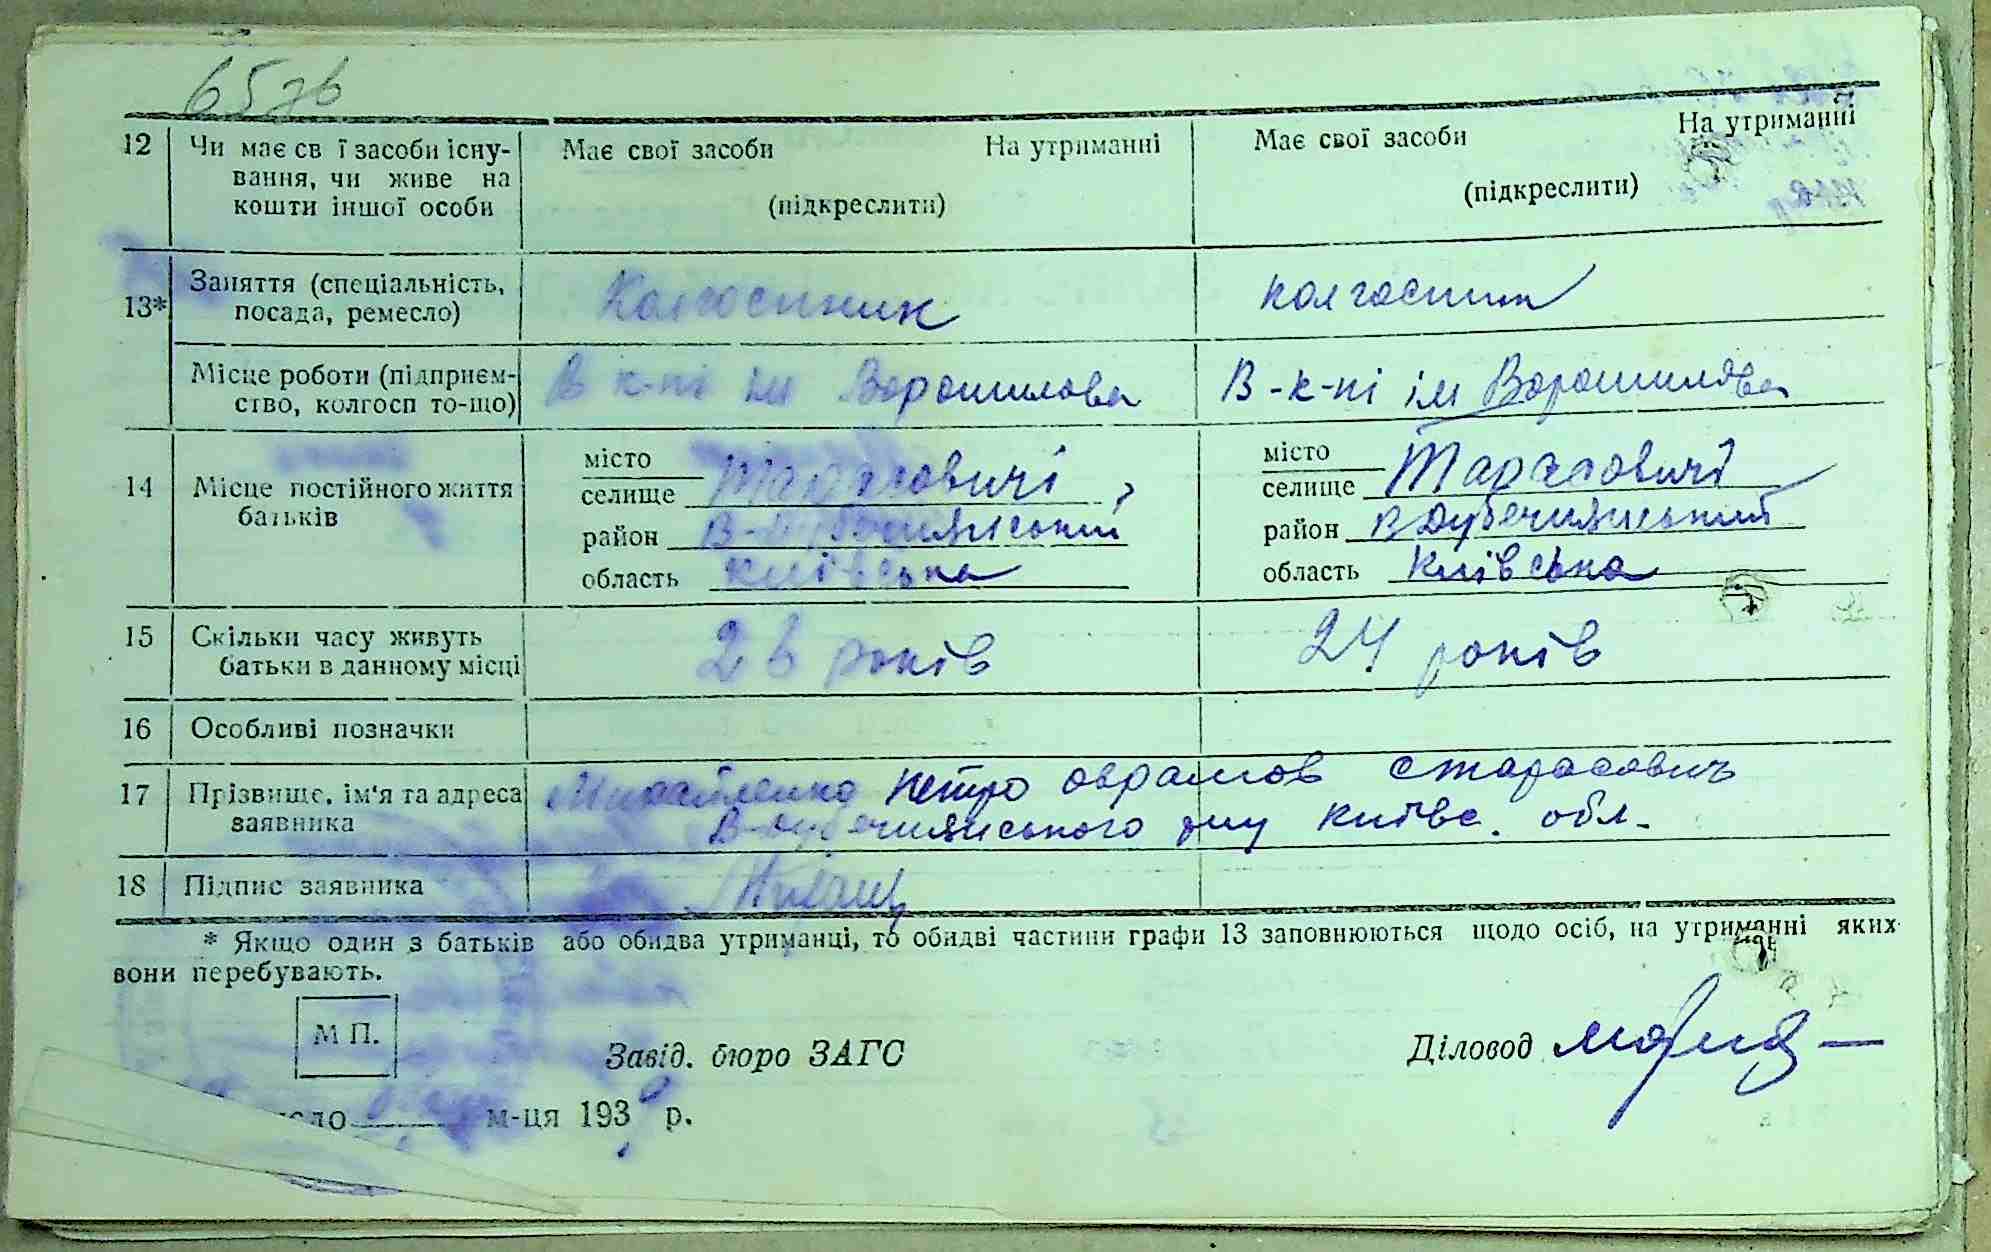 6576
12 Чи має св ї засоби існу- Має свої засоби На утриманні Має свої засоби На утриманні
вання, чи живе на (підкреслити) (підкреслити)
кошти іншої особи
13* Заняття (спеціальність, Колгоспник колгоспник
посада, ремесло)
Місце роботи (підприєм- В к-пі ім Ворошилова В-к-пі ім Ворошилова
ство, колгосп то-що)
14 Місце постійного життя батьків
місто
селище Тарасовичі
район В-Дубечнянський
область Київська
місто
селище Тарасовичі
район В Дубечнянський
область Київська
15 Скільки часу живуть 26 років 24 років
батьки в данному місці
16 Особливі позначки
17 Прізвище, ім'я та адреса Михайленко Петро оврамов старасович
заявника В-дубечнянського р-ну Київс. обл.
18 Підпис заявника
* Якщо один з батьків або обидва утриманці, то обидві частини графи 13 заповнюються щодо осіб, на утриманні яких
вони перебувають.
М П.
Завід. бюро ЗАГС Діловод
м-ця 193 р.